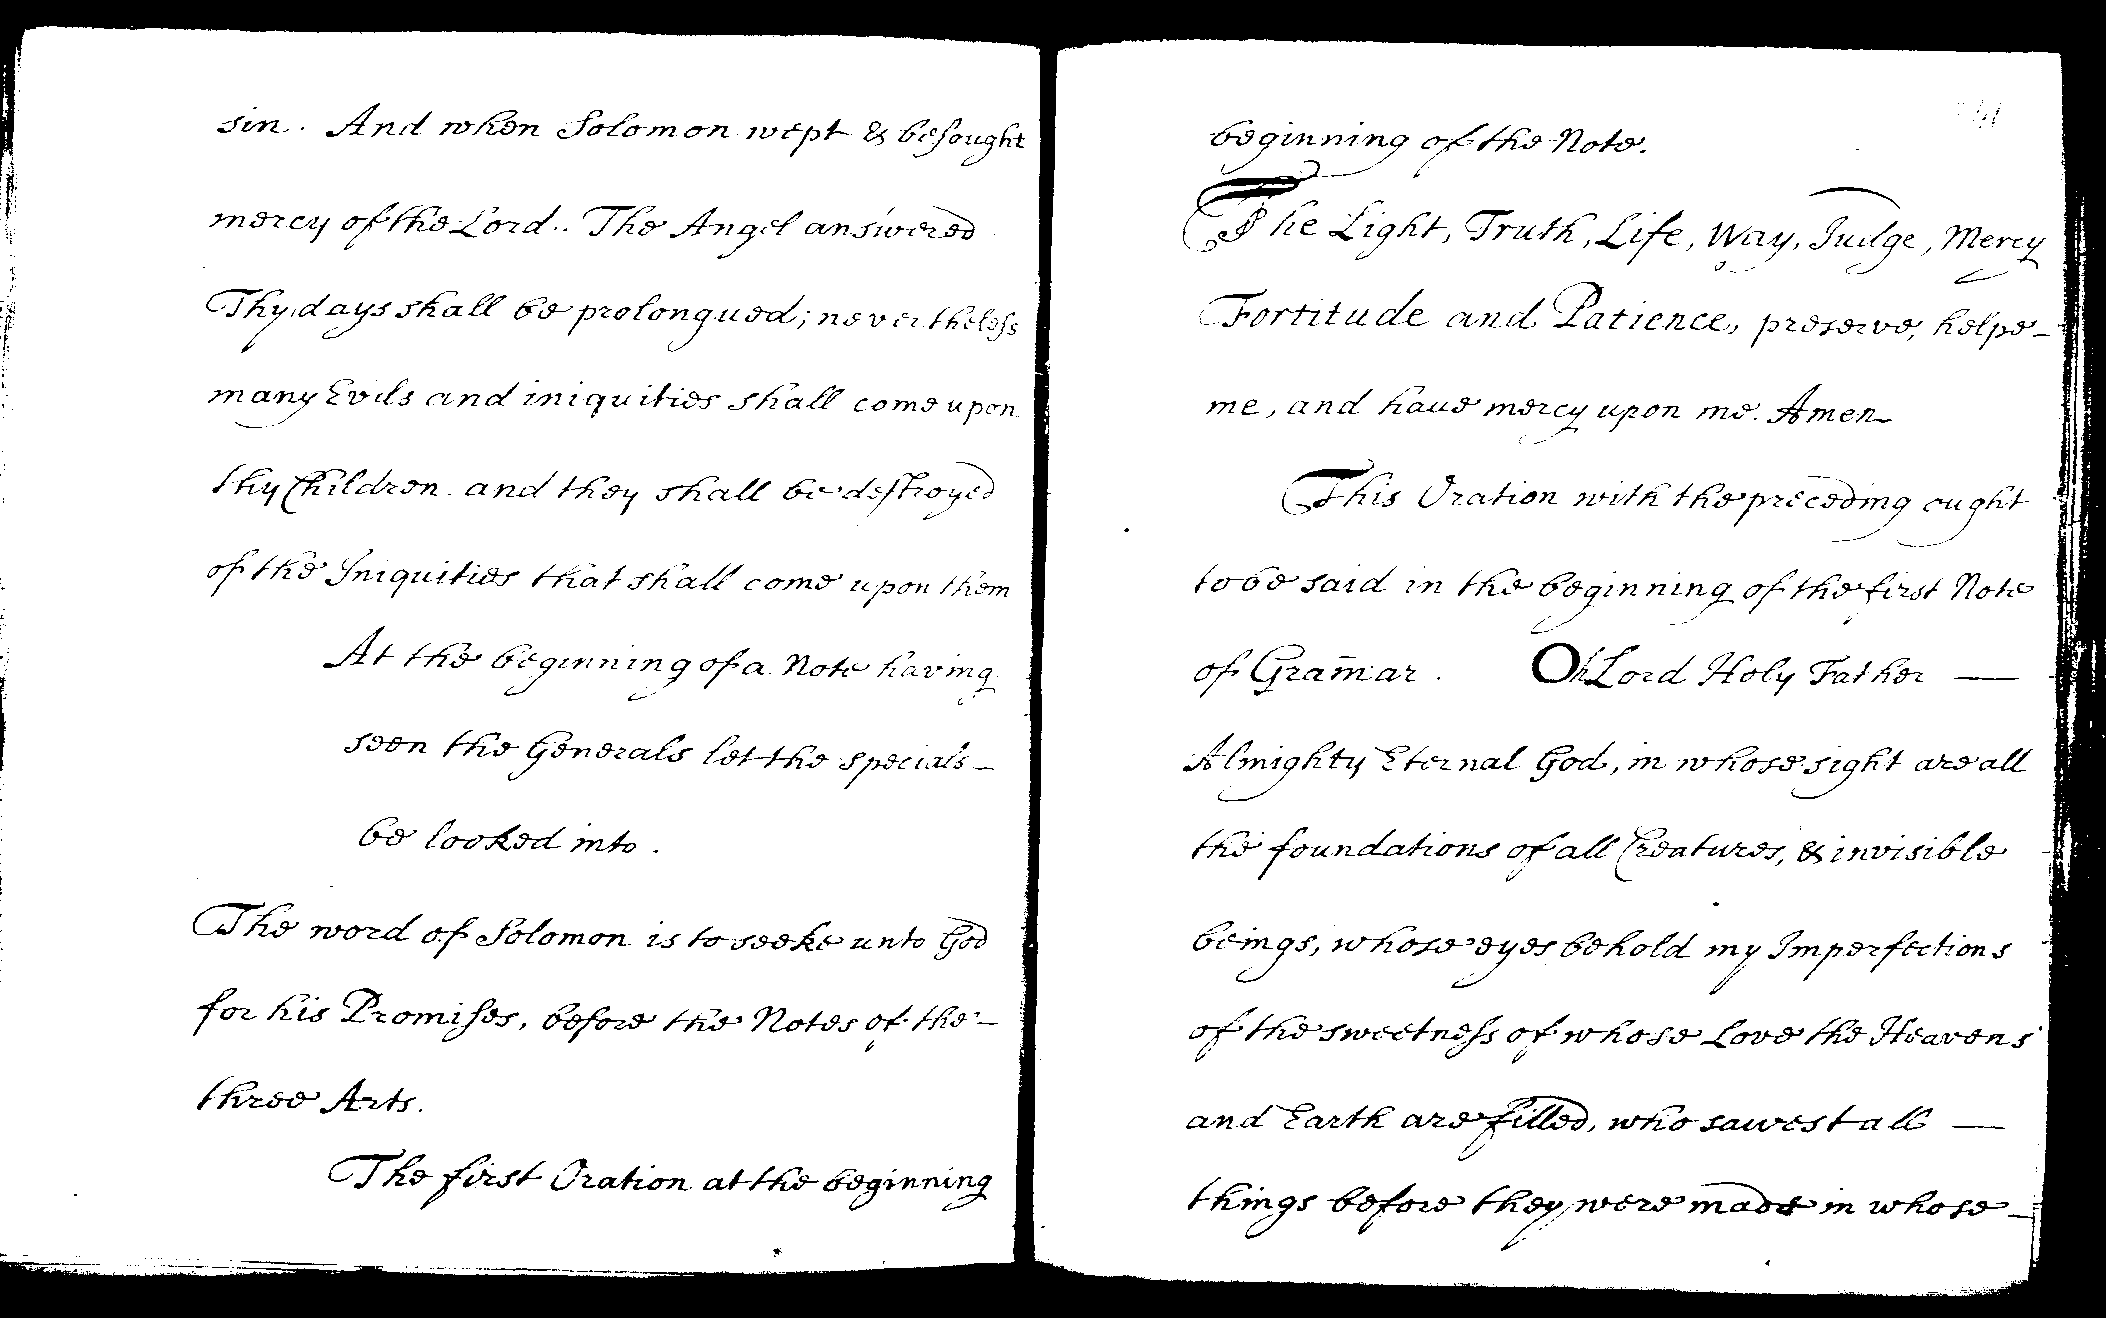 sin. And when Solomon wept & besought
mercy of the Lord.. The Angel answered
Thy days shall be prolongued; nevertheless
many Evils and iniquities shall come upon
thy Children and they shall be destroyed
of the Iniquities that shall come upon them
At the beginning of a Note having
seen the Generals let the specials –
be looked into.
The word of Solomon is to seeke unto God
for his Promises, before the Notes of the –
three Arts.
The first Oration at the beginning
beginning of the Note.
The Light, Truth, Life, Way, Judge, Mercy
Fortitude and Patience, preserve, helpe –
me, and haue mercy upon me. Amen
This Oration with the preceding ought
to be said in the beginning of the first Note
of Gram̄ar. Oh Lord Holy Father —
Almighty Eternal God, in whose sight are all
the foundations of all Creatures, & invisible
beings, whose eyes behold my Imperfections
of the sweetness of whose Love the Heavens
and Earth are filled, who sawest all —
things before they were made in whose –